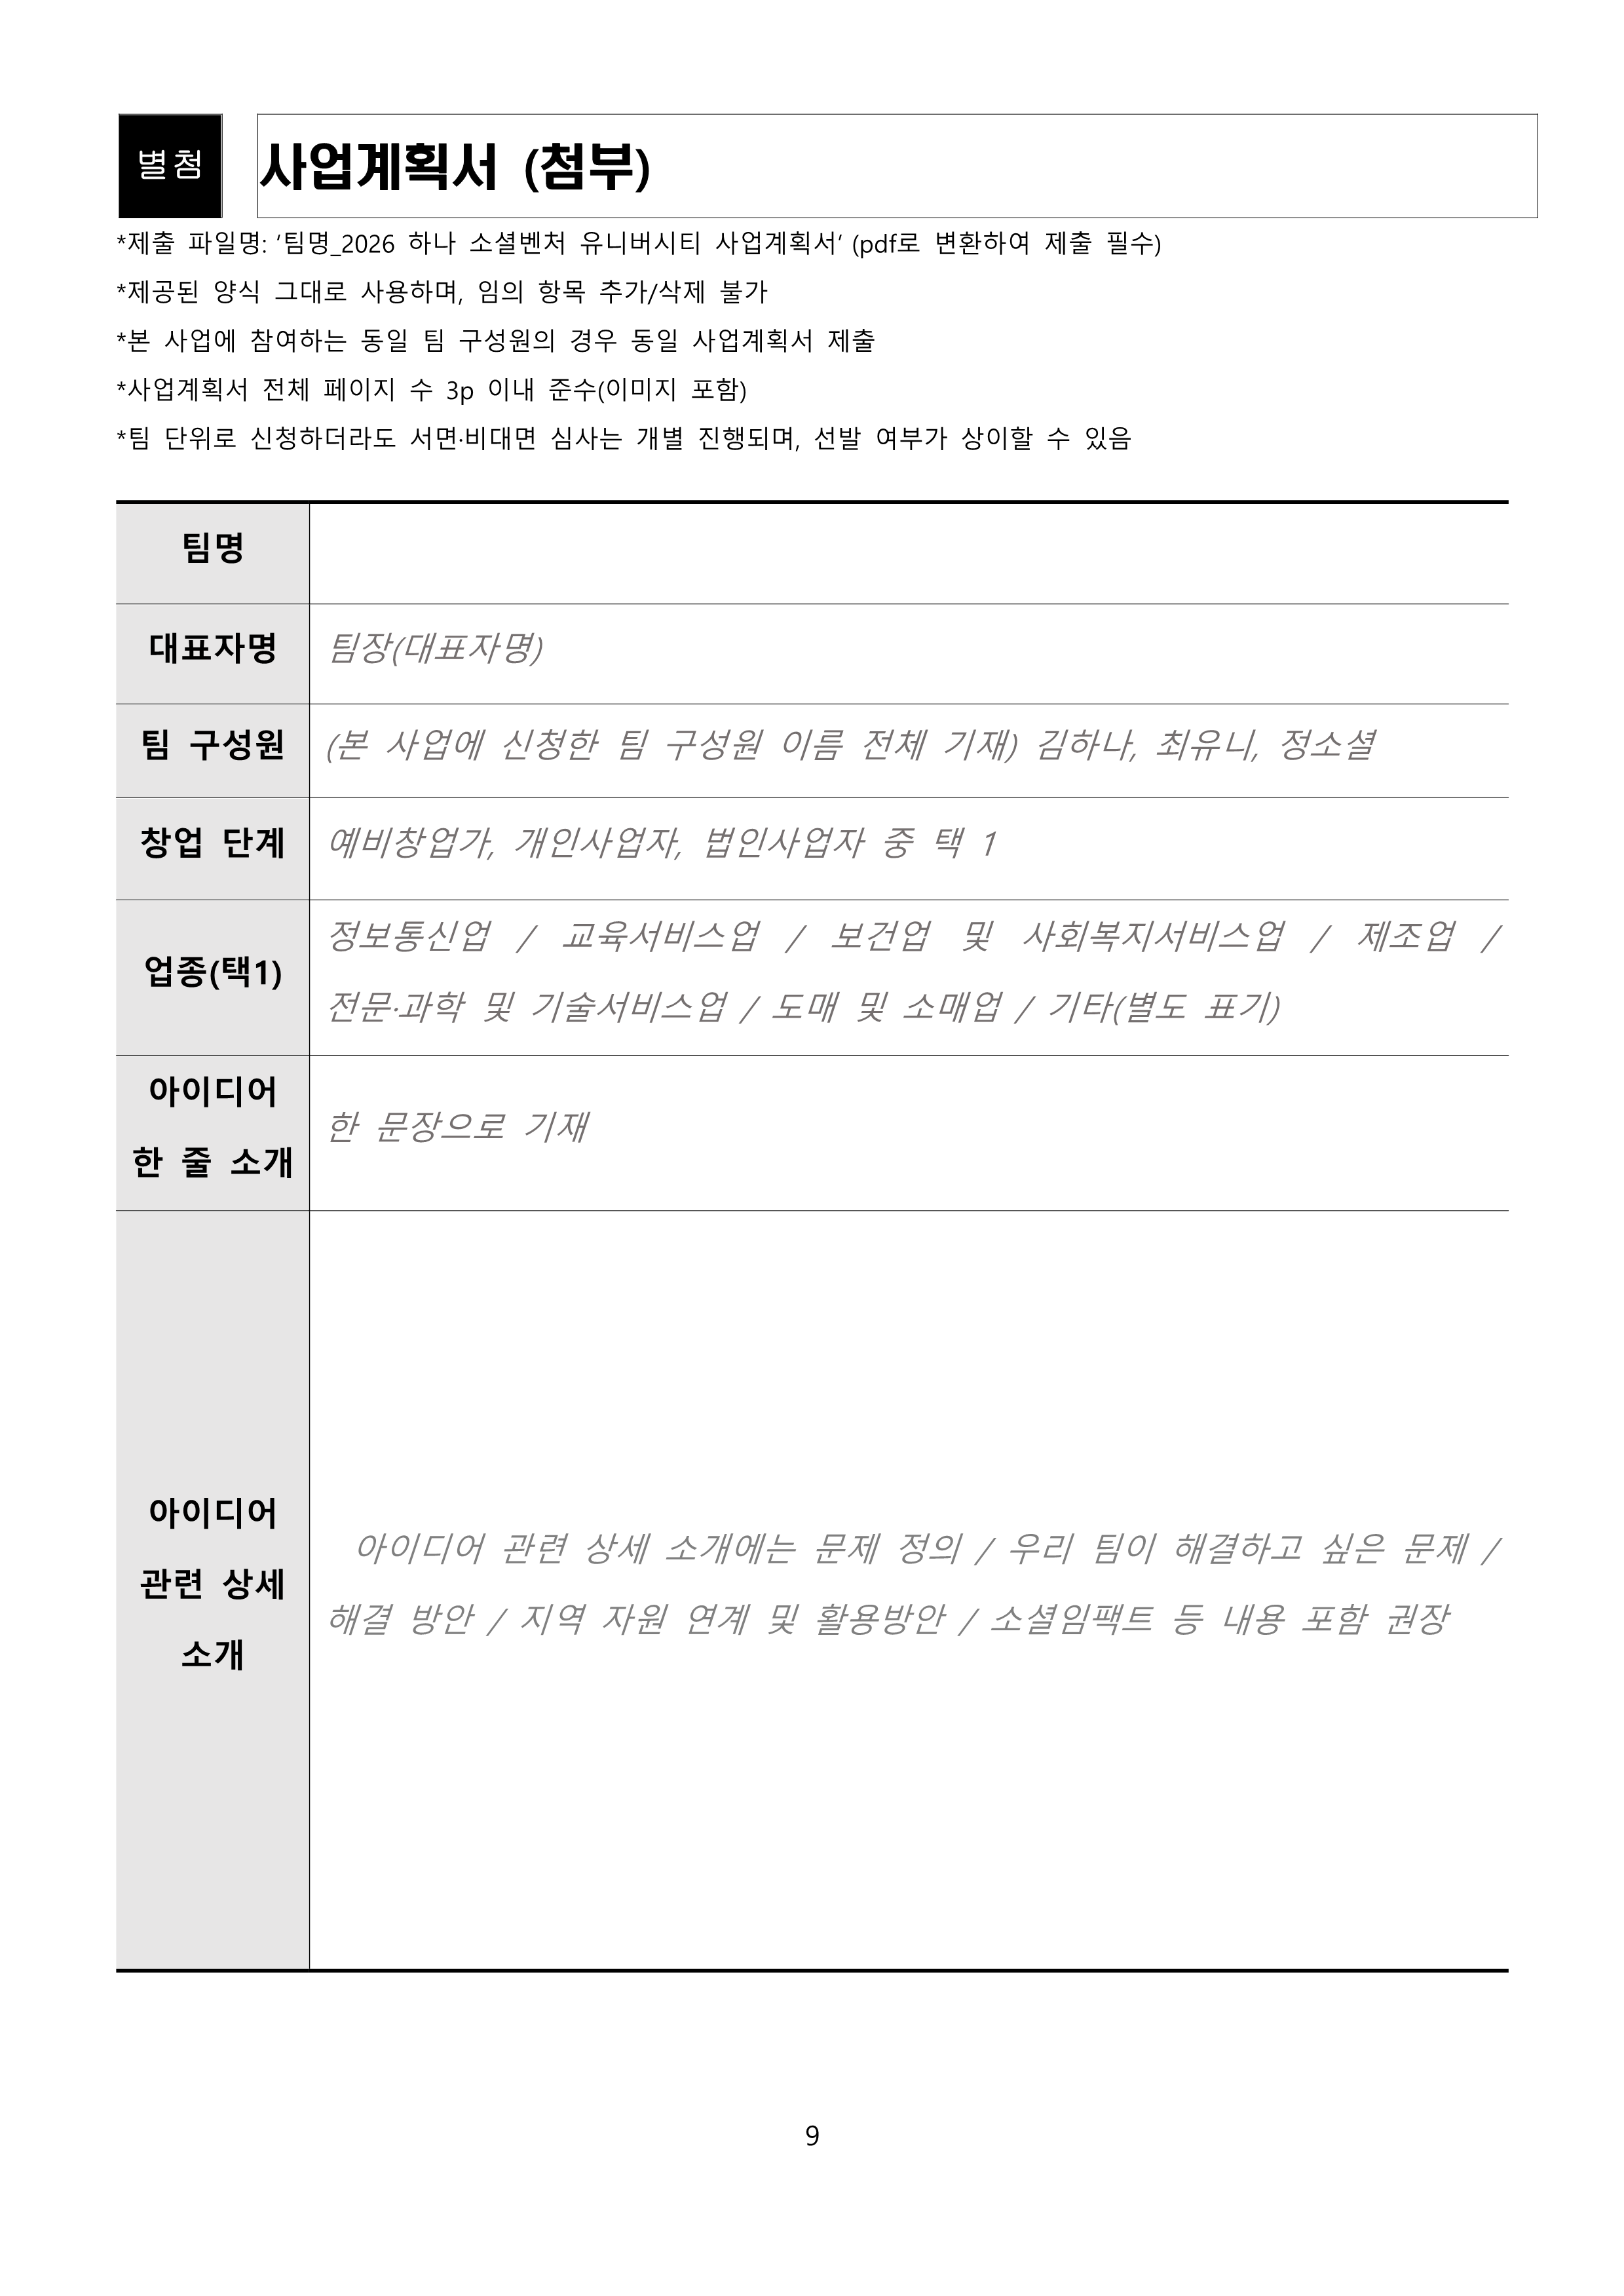 별첨
사업계획서 (첨부)
*제출 파일명: ‘팀명_2026 하나 소셜벤처 유니버시티 사업계획서’ (pdf로 변환하여 제출 필수)
*제공된 양식 그대로 사용하며, 임의 항목 추가/삭제 불가
*본 사업에 참여하는 동일 팀 구성원의 경우 동일 사업계획서 제출
*사업계획서 전체 페이지 수 3p 이내 준수(이미지 포함)
*팀 단위로 신청하더라도 서면·비대면 심사는 개별 진행되며, 선발 여부가 상이할 수 있음
팀명
대표자명
팀장(대표자명)
팀 구성원
(본 사업에 신청한 팀 구성원 이름 전체 기재) 김하나, 최유니, 정소셜
창업 단계
예비창업가, 개인사업자, 법인사업자 중 택 1
업종(택1)
정보통신업 / 교육서비스업 / 보건업 및 사회복지서비스업 / 제조업 /
전문·과학 및 기술서비스업 / 도매 및 소매업 / 기타(별도 표기)
아이디어
한 줄 소개
한 문장으로 기재
아이디어
관련 상세
소개
아이디어 관련 상세 소개에는 문제 정의 / 우리 팀이 해결하고 싶은 문제 /
해결 방안 / 지역 자원 연계 및 활용방안 / 소셜임팩트 등 내용 포함 권장
9